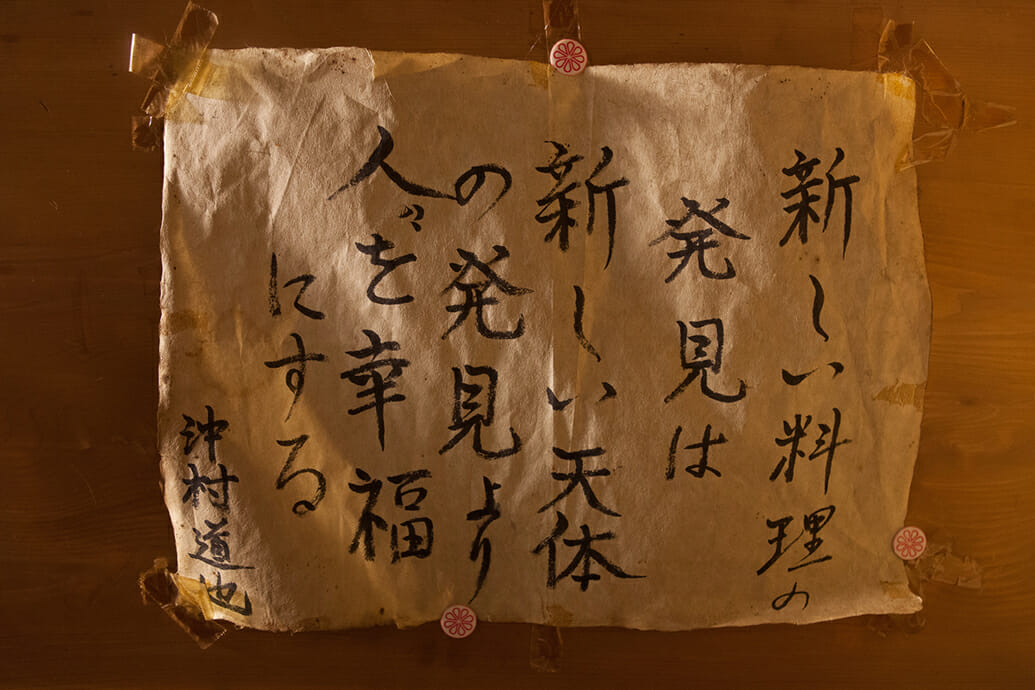 新しい料理の
発見は
新しい天体
の発見より
人々を幸福
にする
沖村道也